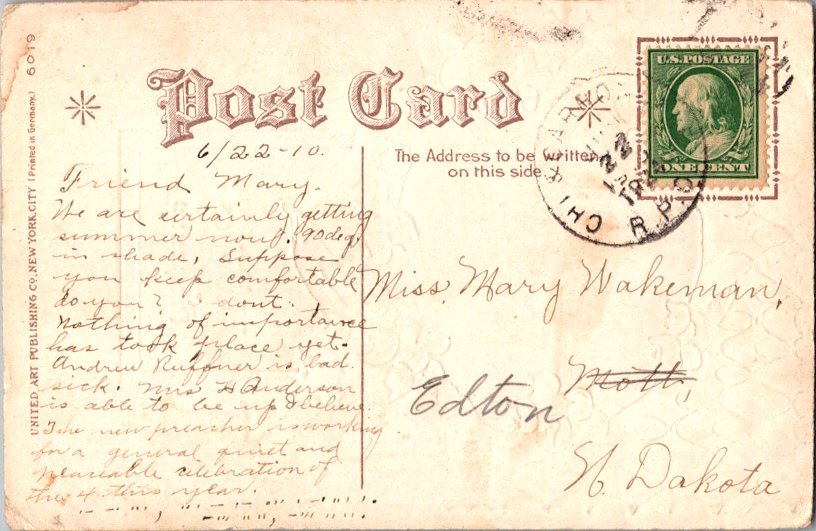 6019
UNITED ART PUBLISHING CO. NEW YORK CITY (Printed in Germany.)
Post Card
The Address to be written
on this side.
U.S. POSTAGE
ONE CENT
CHI
22
R.P.O.
6/22-10.
Friend Mary.
We are certainly getting
summer now. 90 deg.
in shade, Suppose
you keep comfortable
do you? I dont.
Nothing of importance
has took place yet.
Andrew Ruffner is bad
sick. Mrs H Anderson
is able to be up I believe.
The new preacher is working
for a general quiet and
celebration of
the 4 this year.
Miss. Mary Wakeman,
Mott,
Edton
N. Dakota